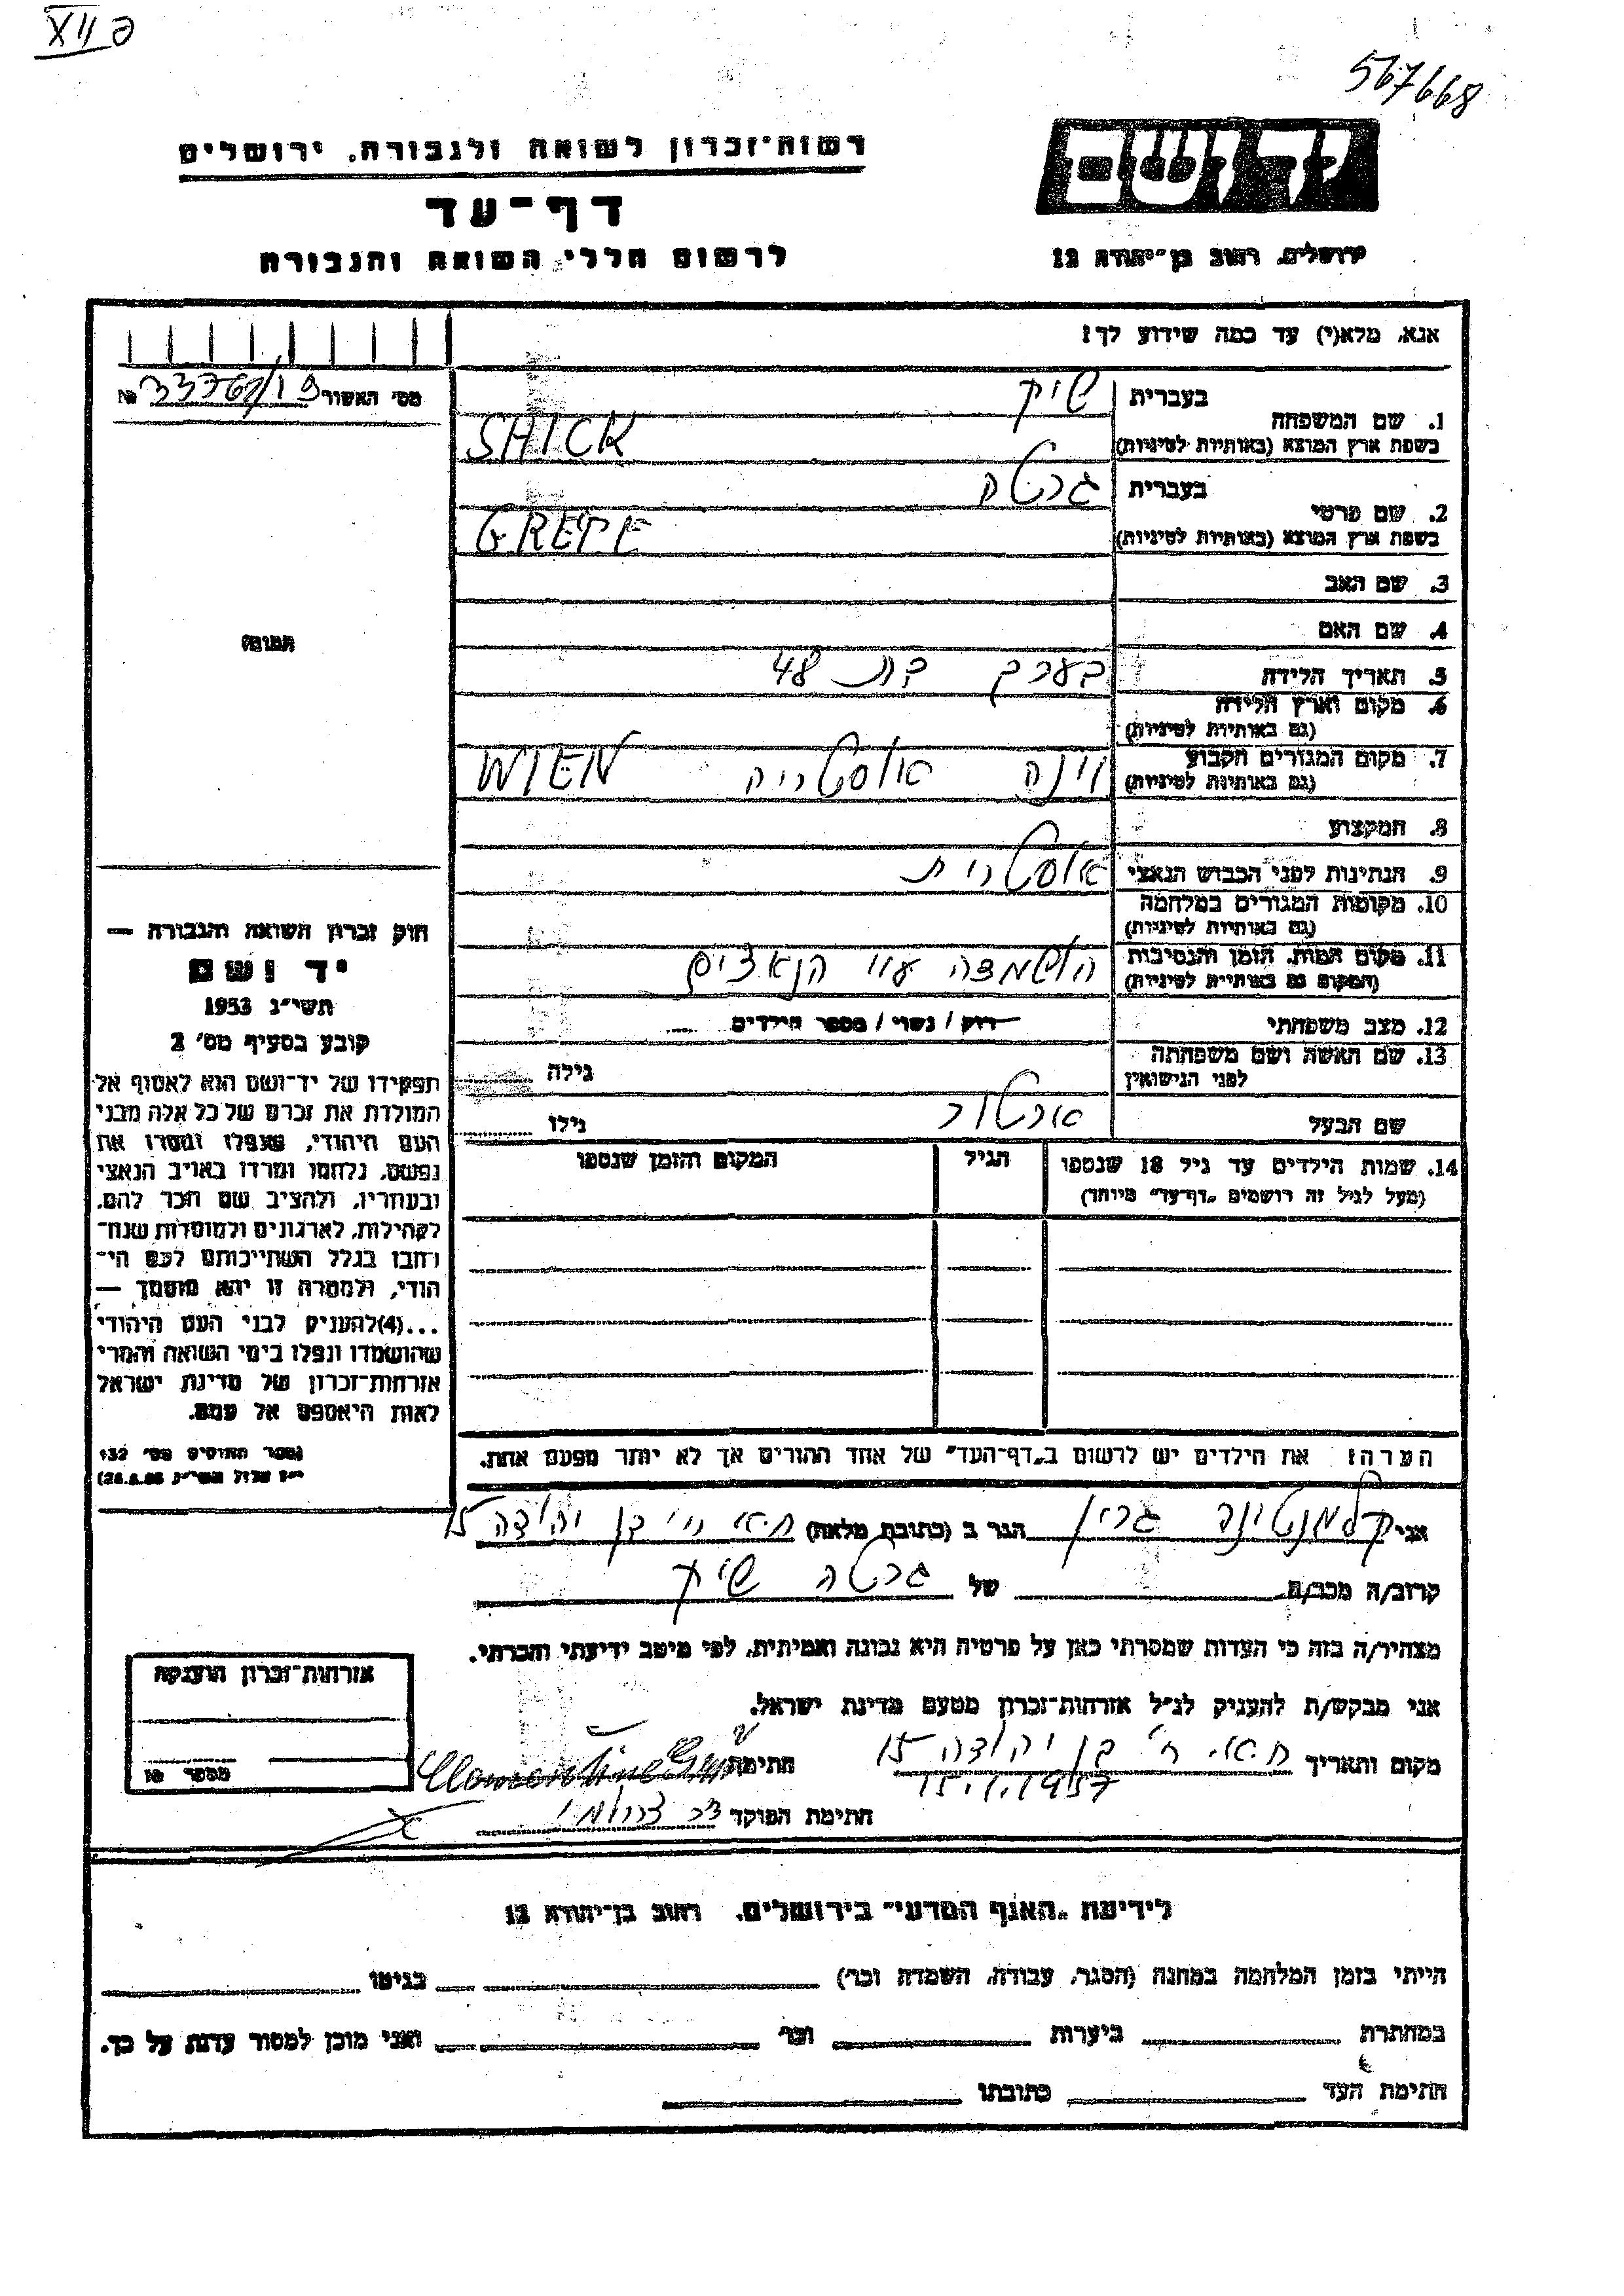 XII פ
567668
רשות־זכרון לשואה ולגבורה, ירושלים
דף־עד
לרשום חללי השואה והגבורה
יד ושם
ירושלים, רחוב בן־יהודה 12
אנא, מלא(י) עד כמה שידוע לך!
מס׳ האשור 33768/19 №
1. שם המשפחה
בעברית שיק
בשפת ארץ המוצא (באותיות לטיניות) SHICK
2. שם פרטי
בעברית גרטה
בשפת ארץ המוצא (באותיות לטיניות) GRETE
3. שם האב
4. שם האם
5. תאריך הלידה בערך בת 48
6. מקום וארץ הלידה
(גם באותיות לטיניות)
7. מקום המגורים הקבוע
(גם באותיות לטיניות) וינה אוסטריה WIEN
8. המקצוע
9. הנתינות לפני הכבוש הנאצי אוסטרית
10. מקומות המגורים במלחמה
(גם באותיות לטיניות)
11. מקום המות, הזמן והנסיבות
(המקום גם באותיות לטיניות) הושמדה ע״י הנאצים
12. מצב משפחתי רוק / נשוי / מספר הילדים
13. שם האשה ושם משפחתה
לפני הנישואין גילה
שם הבעל ארטור גילו
14. שמות הילדים עד גיל 18 שנספו
(מעל לגיל זה רושמים „דף־עד״ מיוחד)
הגיל
המקום והזמן שנספו
הערה: את הילדים יש לרשום ב„דף־העד״ של אחד ההורים אך לא יותר מפעם אחת.
תמונה
חוק זכרון השואה והגבורה —
יד ושם
תשי״ג 1953
קובע בסעיף מס׳ 2
תפקידו של יד־ושם הוא לאסוף אל
המולדת את זכרם של כל אלה מבני
העם היהודי, שנפלו ומסרו את
נפשם, נלחמו ומרדו באויב הנאצי
ובעוזריו, ולהציב שם וזכר להם,
לקהילות, לארגונים ולמוסדות שנח־
רבו בגלל השתייכותם לעם הי־
הודי, ולמטרה זו יהא מוסמך —
...(4)להעניק לבני העם היהודי
שהושמדו ונפלו בימי השואה והמרי
אזרחות־זכרון של מדינת ישראל
לאות היאספם אל עמם.
(ספר החוקים מס׳ 132
אני קלמנטינה גרין הגר ב (כתובת מלאה) ת.א. רח׳ בן יהודה 15
קרוב/ה מכר/ה של גרטה שיק
מצהיר/ה בזה כי העדות שמסרתי כאן על פרטיה היא נכונה ואמיתית, לפי מיטב ידיעתי והכרתי.
אני מבקש/ת להעניק לנ״ל אזרחות־זכרון מטעם מדינת ישראל.
מקום ותאריך ת.א. רח׳ בן יהודה 15
15.1.1957
חתימה Clementine Grün
חתימת הפוקד
אזרחות־זכרון הוענקה
מספר
לידיעת „האגף המדעי״ בירושלים, רחוב בן־יהודה 12
הייתי בזמן המלחמה במחנה (הסגר, עבודה, השמדה וכו׳) בגיטו
במחתרת ביערות וכו׳ ואני מוכן למסור עדות על כך.
חתימת העד כתובתו